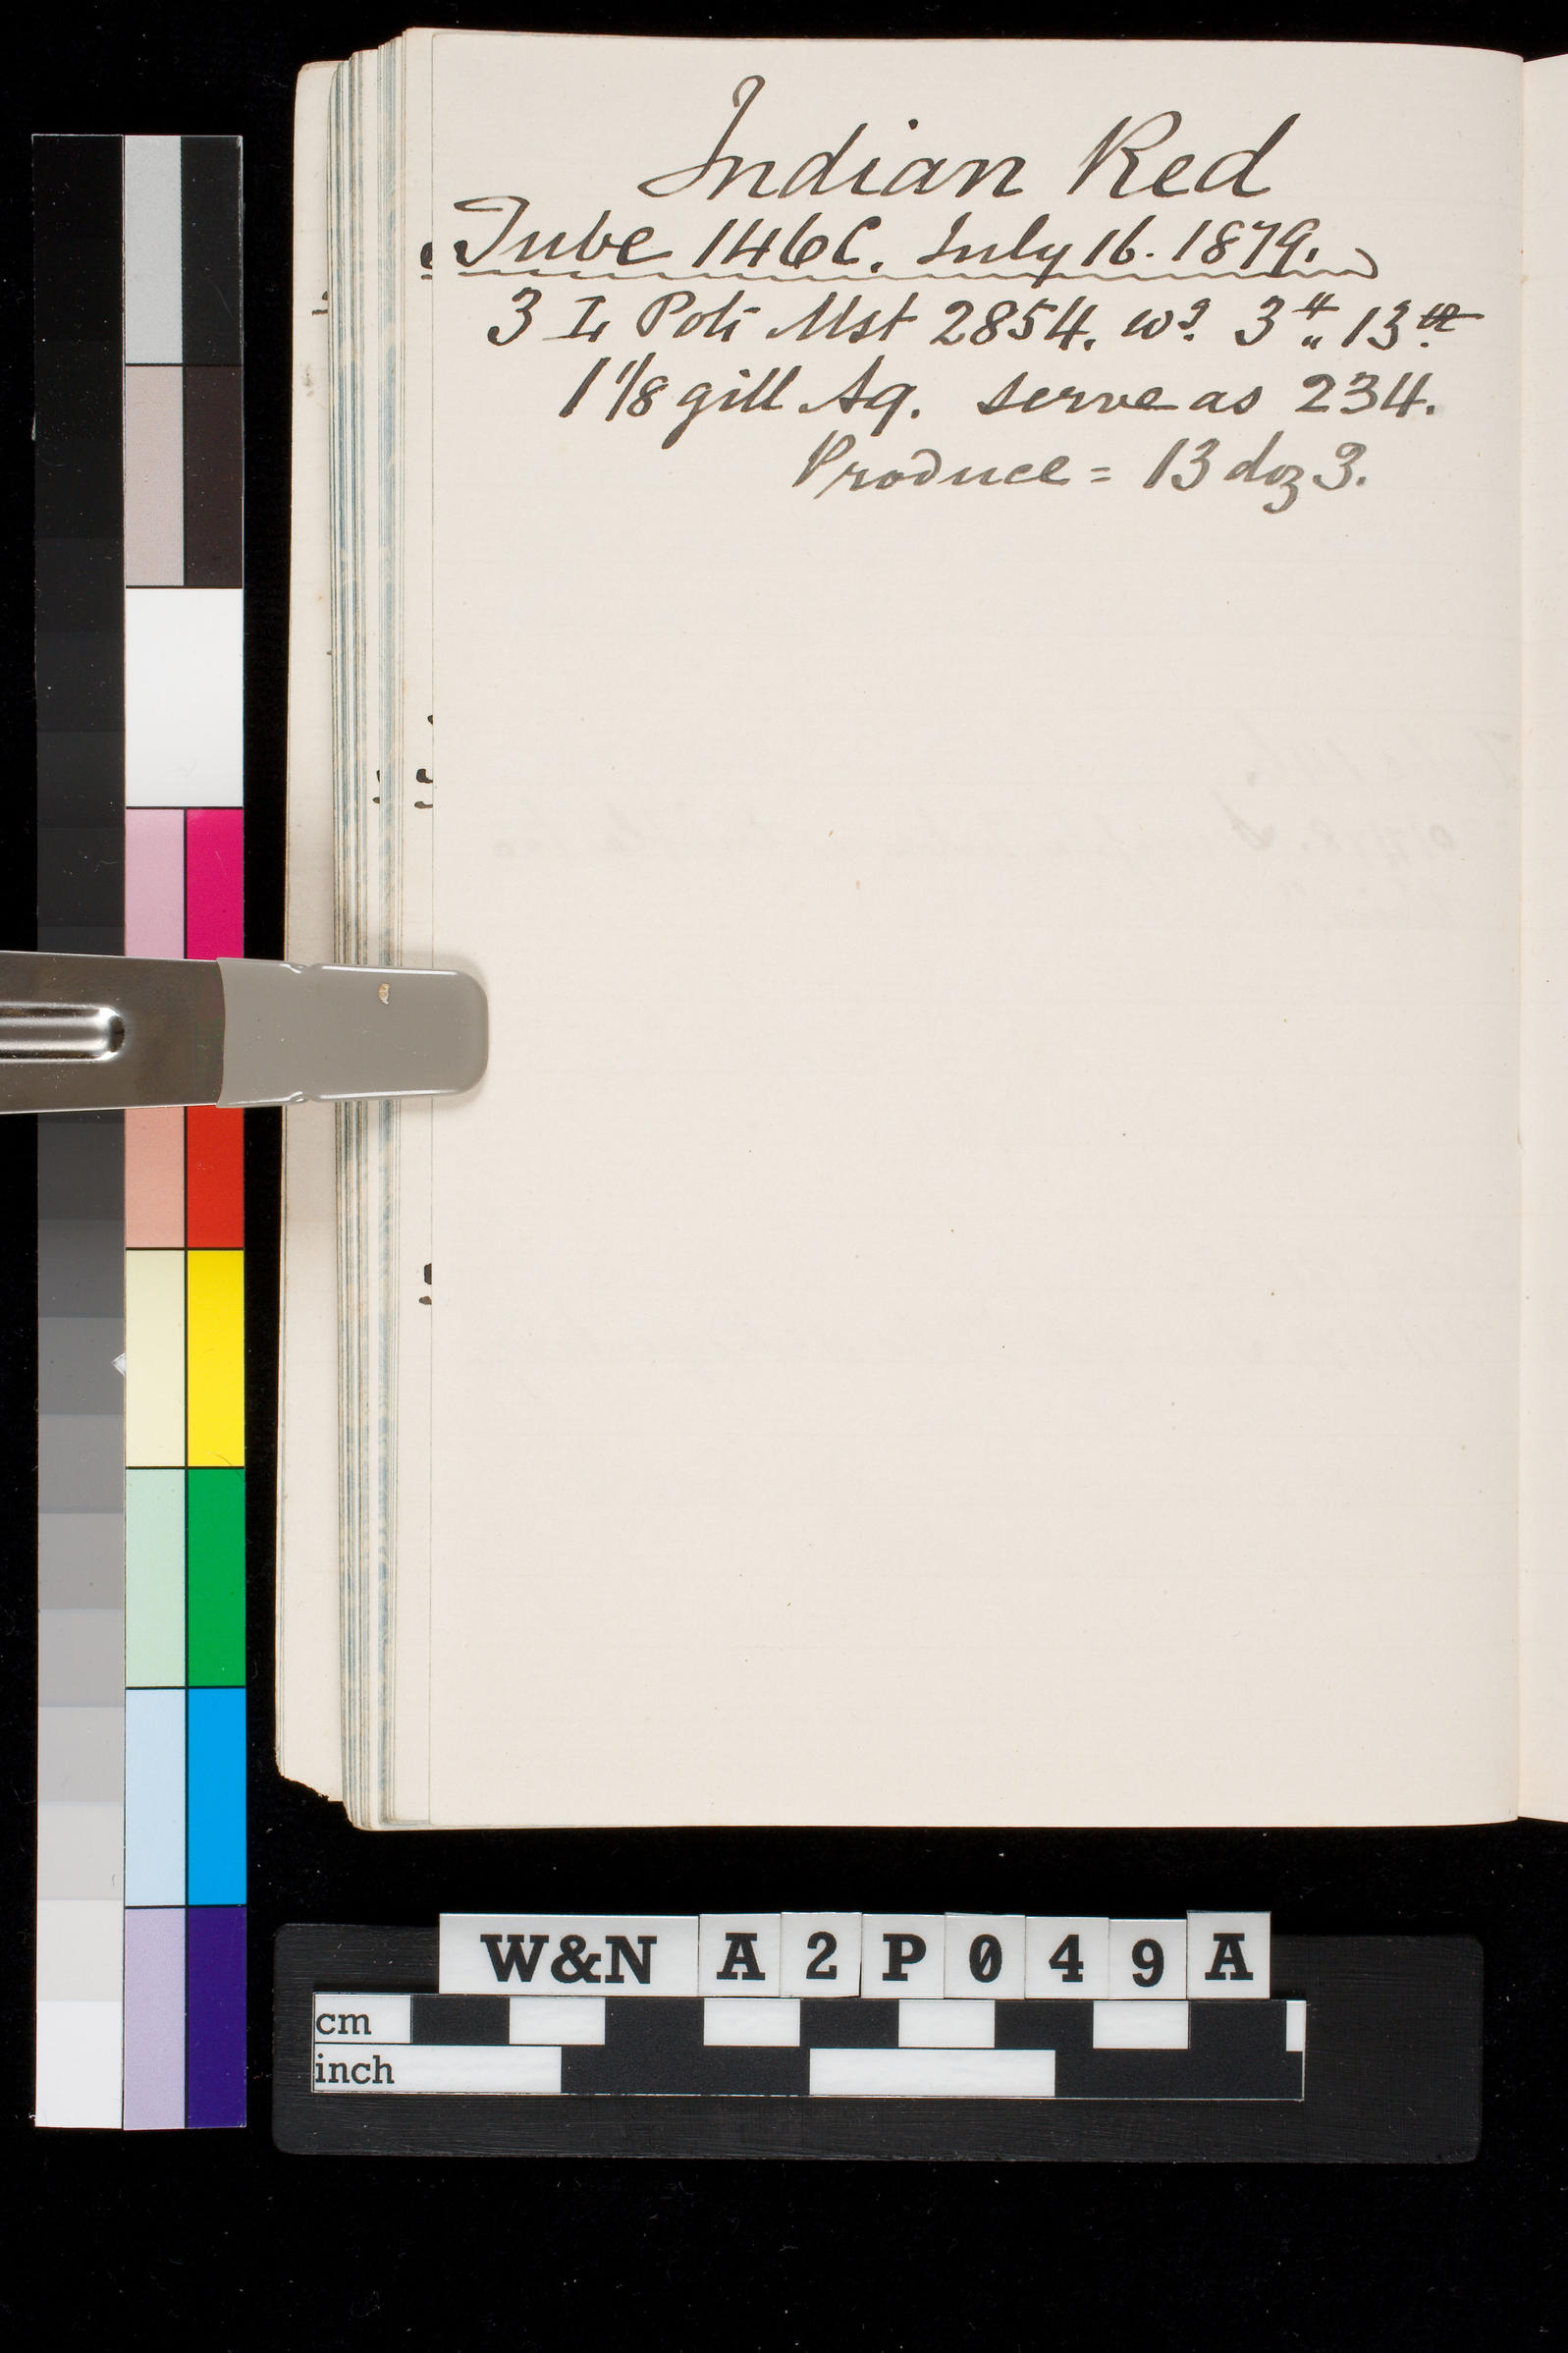 Indian Red
Tube 146C. July 16. 1879.
3 L Pots Mst 2854. wg. 3 lb „ 13 oz
1 1/8 gill Aq. serve as 234.
Produce = 13 doz 3.
W&N A2P049A
cm
inch